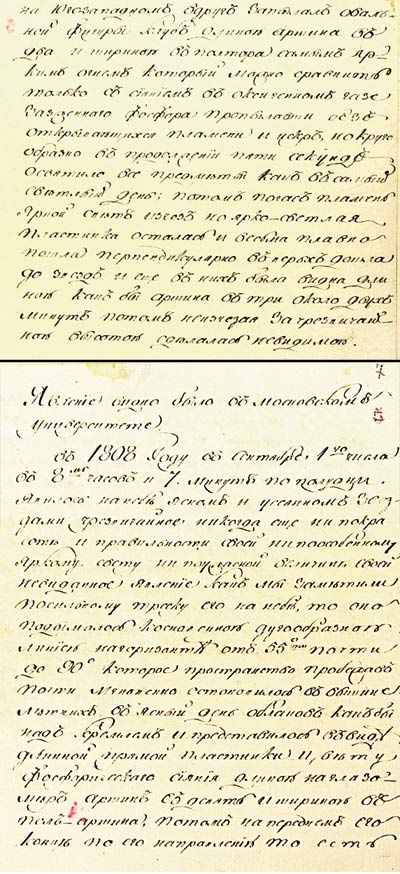 на Югозападномъ вдругъ запылалъ оваль-
ной фигуры клубъ длиною аршина въ
два и шириною въ полтора самымъ яр-
кимъ огнемъ который можно сравнить
только съ сіяніемъ въ окисленномъ газе
зазженнаго фосфора пропылавши безъ
открывающихся пламени и искръ, но круго
образно въ продолженіи пяти секундъ
осветило все предметы какъ въ самый
светлый день; потомъ погасъ пламень
ярной светъ изчезъ но ярко-светлая
пластинка осталась и весьма плавно
пошла перпендикулярно въ верьхъ дошла
до звездъ и еще въ нихъ была видна дли
ною какъ бы аршина въ три около двухъ
минутъ потомъ неизчезая за чрезвычай-
ною высотою сделалась невидимою.
7
Явленіе видно было въ Московскомъ
Университете
въ 1808 Году въ Сентябре 1го числа
въ 8мъ часовъ и 7. минутъ по полудни
явилось на небе ясномъ и усеянномъ звез-
дами чрезвычайное никогда еще ни по кра
соте и правильности своей ни по особенному
яркому свету ни по ужасной величине своей
невиданное явленіе какъ мы заметили
по сильному треску его на небе, то оно
подымалось косвенною дугообразною
линіею на горизонте отъ 55о почти
до 90о которое пространство пробежавъ
почти мгновенно остановилось въ вышине
летнихъ въ ясный день облаковъ какъ бы
надъ Кремлемъ и представилось въ виде
длинной прямой пластинки и, свету
фосферическаго сіянія длиною на глазо-
меръ аршинъ въ девять и шириною въ
полъ-аршина. потомъ на переднемъ его
конце по его направленію то есть